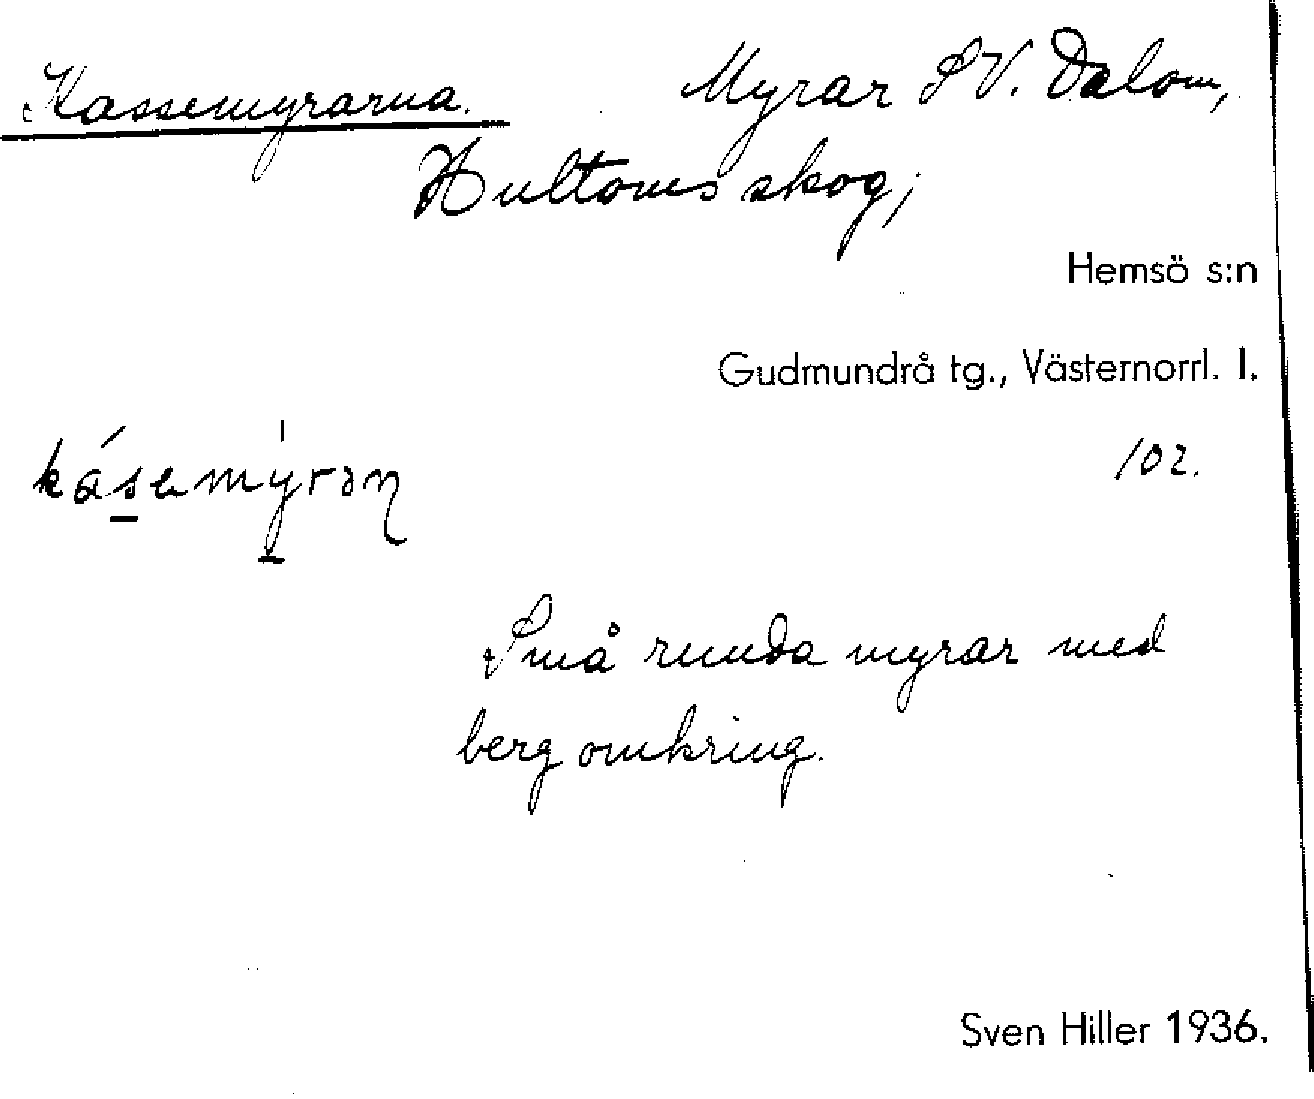 Kassemyrarna. Myrar SV. Dalom,
Hultoms skog;
Hemsö s:n
Gudmundrå tg., Västernorrl. l.
102.
Små runda myrar med
berg omkring.
Sven Hiller 1936.